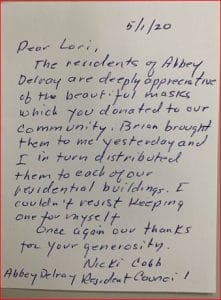 5/1/20
Dear Lori,
The residents of Abbey
Delray are deeply appreciative
of the beautiful masks
which you donated to our
community. Brian brought
them to me yesterday and
I in turn distributed
them to each of our
residential buildings. I
couldn't resist keeping
one for myself
Once again our thanks
for your generosity.
Nicki Cobb
Abbey Delray Resident Council